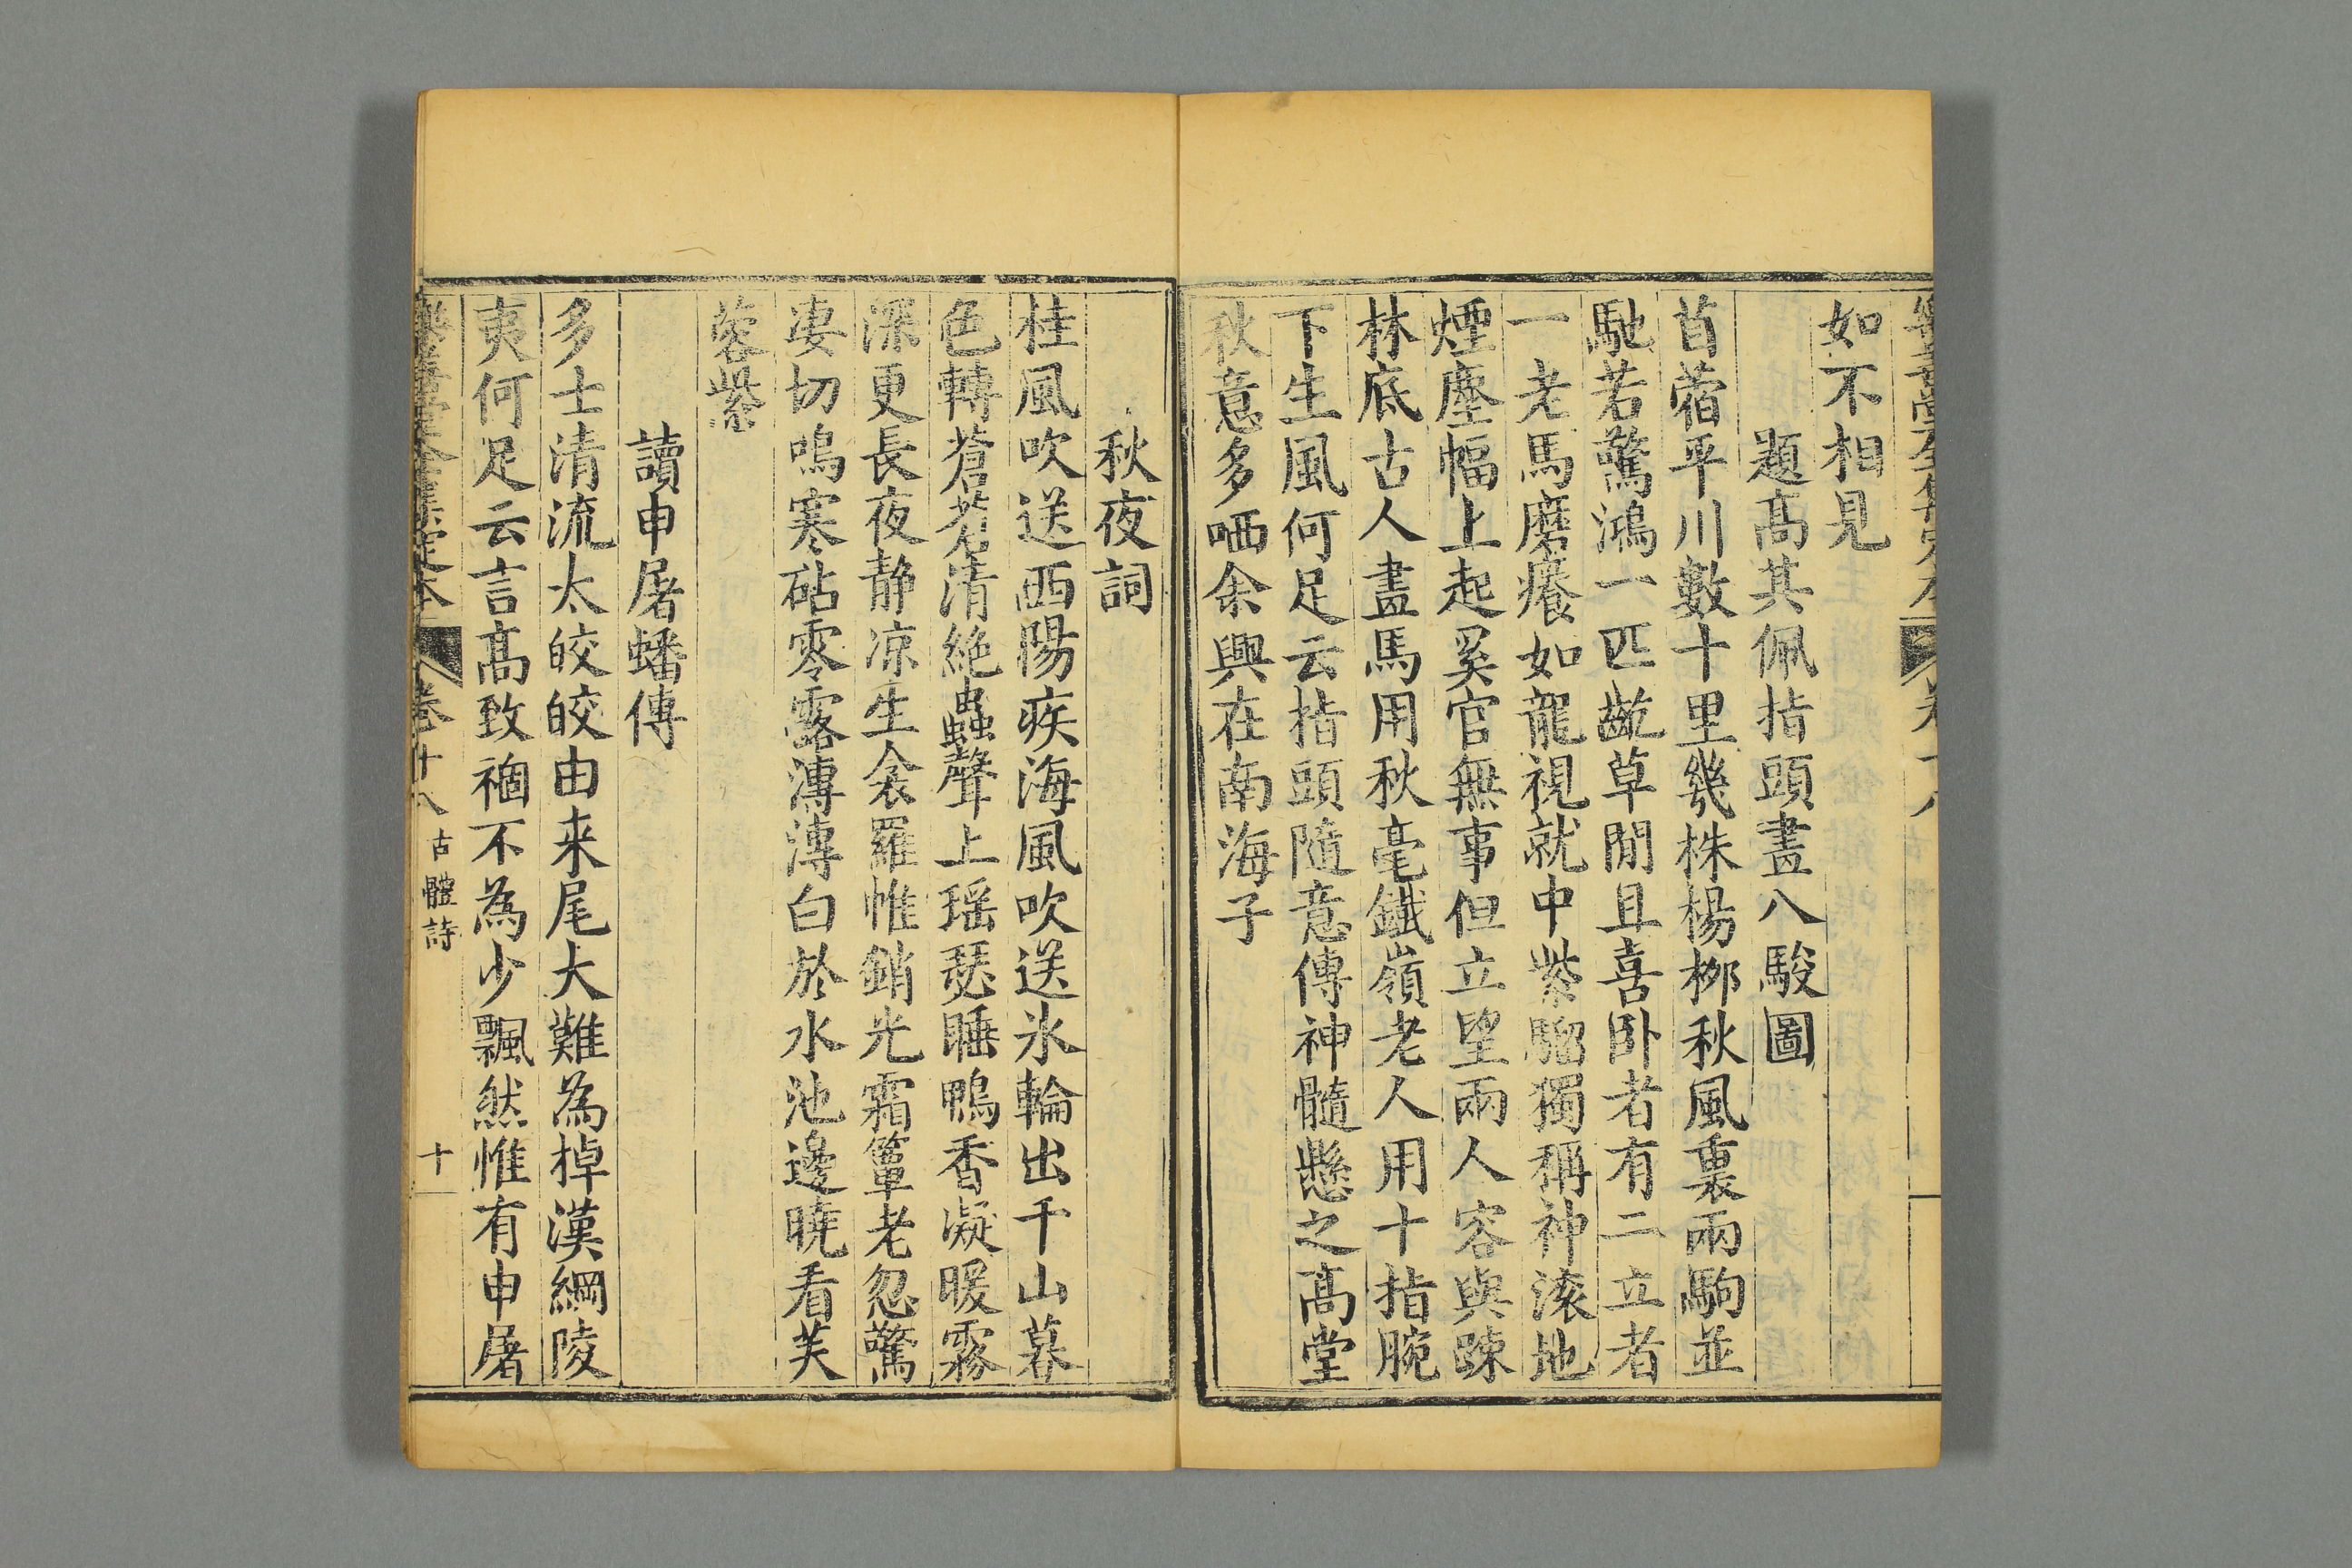 如不相見
題高其佩指頭畫八駿圖
苜蓿平川數十里幾株楊栁秋風裏兩駒並
馳若驚鴻一匹齕草閒且喜卧者有二立者
一老馬磨癢如龍視就中紫騮獨稱神滚地
煙塵幅上起奚官無事但立望兩人容與踈
林底古人畫馬用秋毫鐵嶺老人用十指腕
下生風何足云指頭隨意傳神髓懸之高堂
秋意多哂余興在南海子
秋夜詞
桂風吹送西陽疾海風吹送氷輪出千山暮
色轉蒼茫清絶蟲聲上瑶瑟睡鴨香凝暖霧
深更長夜静凉生衾羅帷銷光霜簟老忽驚
凄切嗚寒砧零露漙漙白於水池邊曉看芙
蓉紫
讀申屠蟠傳
多士清流太皎皎由来尾大難為掉漢綱陵
夷何足云言高致禍不為少飄然惟有申屠
卷十八 古體詩 十